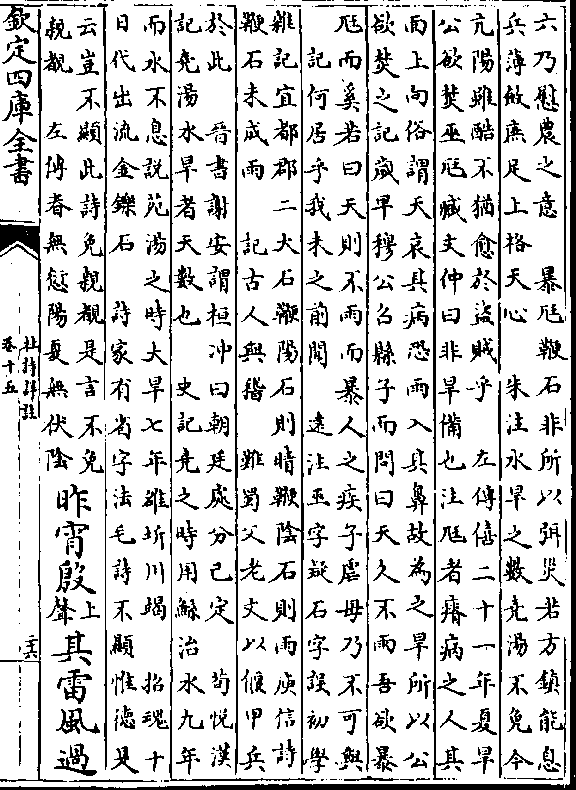 六乃慰農之意　暴尫鞭石非所以弭災若方鎮能息
兵薄斂庶足上格天心　朱注水旱之數堯湯不免今
亢陽雖酷不猶愈於盜賊乎　左傳僖二十一年夏旱
公欲焚巫尫臧文仲曰非旱備也注尫者瘠病之人其
面上向俗謂天哀其病恐雨入其鼻故為之旱所以公
欲焚之記歲旱穆公召縣子而問曰天久不雨吾欲暴
尫而奚若曰天則不雨而暴人之疾子虐毋乃不可與
記何居乎我未之前聞　遠注巫字疑石字誤初學
雜記宜都郡二大石鞭陽石則晴鞭陰石則雨庾信詩
鞭石未成雨　記古人與稽　難蜀父老文以偃甲兵
於此　晉書謝安謂桓沖曰朝廷處分已定　荀悅漢
記堯湯水旱者天數也　史記堯之時用鯀治水九年
而水不息說苑湯之時大旱七年雒坼川竭　招魂十
日代出流金鑠石　詩家有省字法毛詩不顯惟德見
云豈不顯此詩免親覲是言不免
親覲　左傳春無愆陽夏無伏陰
昨宵殷上聲其雷風過
欽定四庫全書
杜詩詳註
卷十五
二六